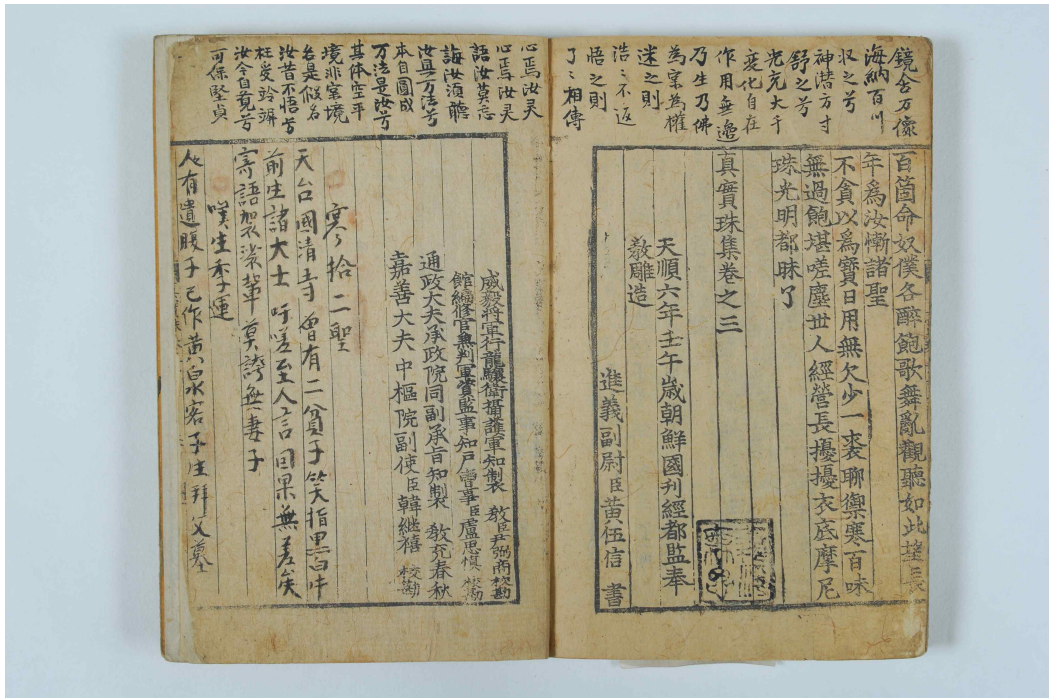 鏡含万像
海納百川
収之兮
神潜方寸
舒之兮
光充大千
変化自在
作用無邊
乃生乃佛
為宗為權
迷之則
浩々不返
悟之則
了々相傳
百箇命奴僕各醉飽歌舞亂觀聽如此
年爲汝慚諸聖
不貪以爲寶日用無欠少一裘聊禦寒百味
無過飽堪嗟塵世人經營長擾擾衣底摩尼
珠光明都昧了
真實珠集卷之三
天順六年壬午歲朝鮮國刊經都監奉
教雕造
進義副尉臣黃伍信 書
心焉汝灵
心焉汝灵
語汝莫忘
誨汝須聽
汝具万法兮
本自圓成
万法是汝兮
其体空平
境非實境
名是假名
汝昔不悟兮
枉受玲渄
汝今自覓兮
可保堅貞
威毅將軍行龍驤衛攝護軍知製 教臣尹弼商校勘
館編修官兼判軍資監事知戶曹事臣盧思愼 校勘
通政大夫承政院同副承旨知製 敎充春秋
嘉善大夫中樞院副使臣韓繼禧 校勘
寒拾二聖
天台國清寺曾有二貧子笑指黑白牛
前生諸大士吁嗟至人言因果無差矣
寄語袈裟輩莫誇無妻子
嘆生季運
人有遺腹子已作黃泉客子生拜父墓